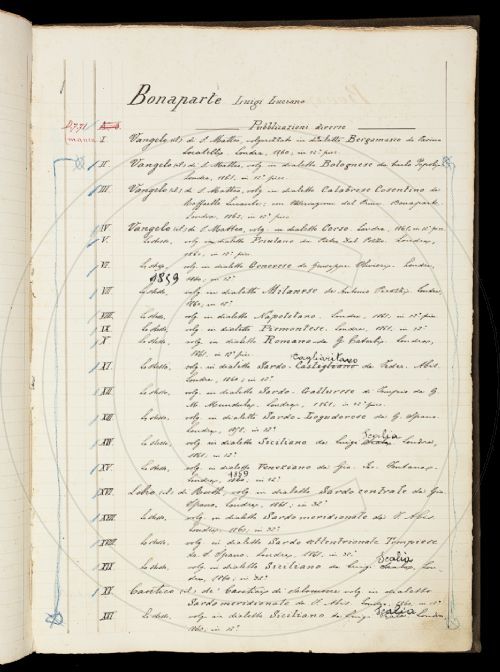 Bonaparte Luigi Luciano
Pubblicazioni diverse
I. Vangelo (il) di S. Matteo, volgarizzato in dialetto Bergamasco da
Locatello. Londra, 1860, in 12º picc.
II Vangelo (il) di S. Matteo, volg. in dialetto Bolognese da Carlo Pepoli,
Londra, 1862, in 12º picc.
III Vangelo (il) di S. Matteo, volg. in dialetto Calabrese Cosentino da
Raffaele Lucente; con Osservazioni del Princ. Bonaparte.
Londra, 1862, in 12º picc.
IV. Vangelo (il) di S. Matteo, volg. in dialetto Corso. Londra, 1861, in 12º picc.
V. Lo stesso, volg. in dialetto Friulano da Pietro Dal Pozzo. Londra,
1860, in 12º picc.
VI. Lo stesso, volg. in dialetto Genovese da Giuseppe Olivieri. Londra,
1860, in 12º
1859
VII Lo stesso, volg. in dialetto Milanese da Antonio Londra,
1860, in 12º
VIII. Lo stesso, volg. in dialetto Napoletano. Londra, 1861, in 12º picc.
IX Lo stesso, volg. in dialetto Piemontese. Londra, 1861, in 12º
X Lo stesso, volg. in dialetto Romano da G. Caterbi. Londra,
1861, in 12º picc.
Cagliaritano
XI Lo stesso, volg. in dialetto Sardo-Castigliano da Feder. Abis.
Londra, 1860, in 12º
XII. Lo stesso, volg. in dialetto Sardo-Gallurese di Tempio da G.
M. Mundula. Londra, 1861, in 12º picc.
XIII Lo stesso, volg. in dialetto Sardo-Logudorese da G. Spano.
Londra, in 12º
Scalia
XIV. Lo stesso, volg. in dialetto Siciliano da Luigi Londra,
1861, in 12º
XV. Lo stesso, volg. in dialetto Veneziano da Gia. Fontana.
1859
Londra, 1860, in 12º
XVI. Libro (il) di Ruth, volg. in dialetto Sardo centrale da Gio.
Spano. Londra, 1861, in 32º
XVII. Lo stesso, volg. in dialetto Sardo meridionale da F. Abis.
Londra, 1860, in 32º
XVIII. Lo stesso, volg. in dialetto Sardo settentrionale Tempiese
da G. Spano. Londra, 1861, in 32º
Scalia
XIX Lo stesso, volg. in dialetto Siciliano da Luigi Lon-
dra, 1860, in 32º
XX Cantico (il) de' Cantici di Salomone volg. in dialetto
Sardo meridionale da F. Abis. Londra, 1860, in 12º
Scalia
XXI Lo stesso, volg. in dialetto Siciliano da Luigi Londra,
1860, in 12º